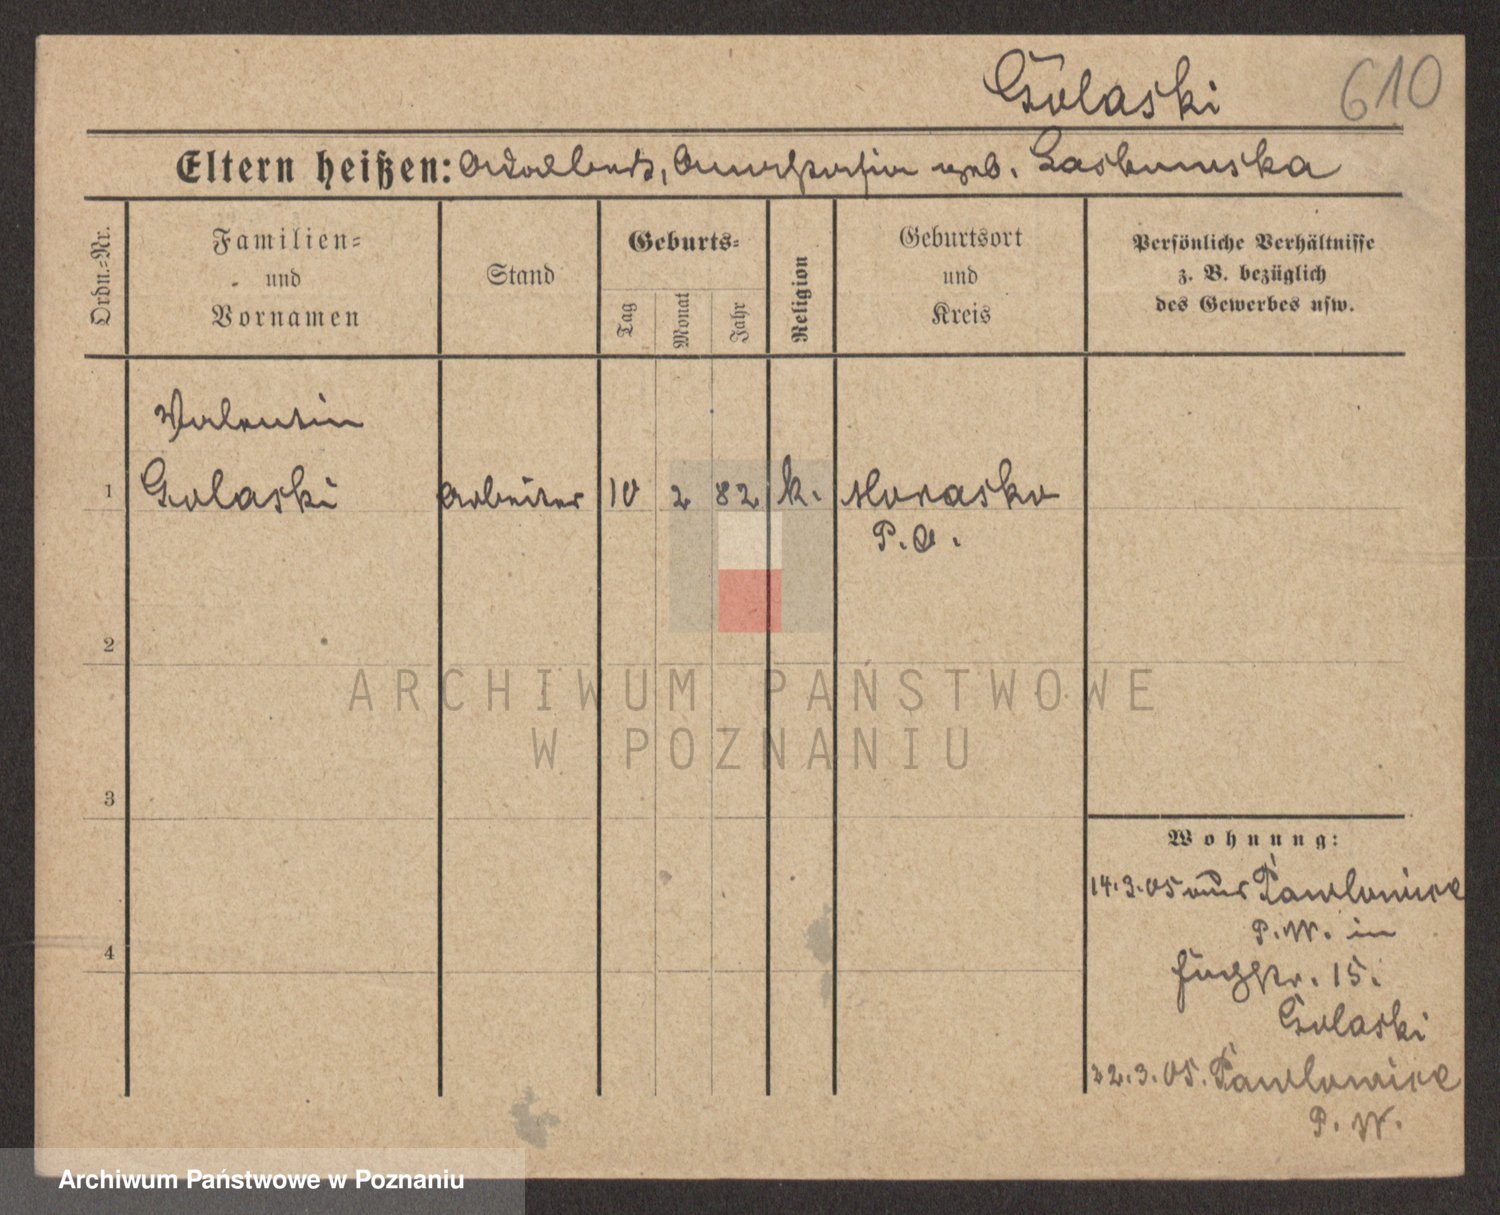 Golaski
610
Eltern heißen: Adalbert, Anastasia geb. Laskowska
Ordn.-Nr.
Familien-
und
Vornamen
Stand
Geburts-
Tag
Monat
Jahr
Religion
Geburtsort
und
Kreis
Persönliche Verhältnisse
z. B. bezüglich
des Gewerbes usw.
Valentin
1 Golaski Arbeiter 10 2 82 k. Morasko
P. O.
2
ARCHIWUM PAŃSTWOWE
W POZNANIU
3
4
Wohnung:
14.3.05 aus Pawlowice
P. W. in
15.
Golaski
22.3.05. Pawlowice
P. W.
Archiwum Państwowe w Poznaniu